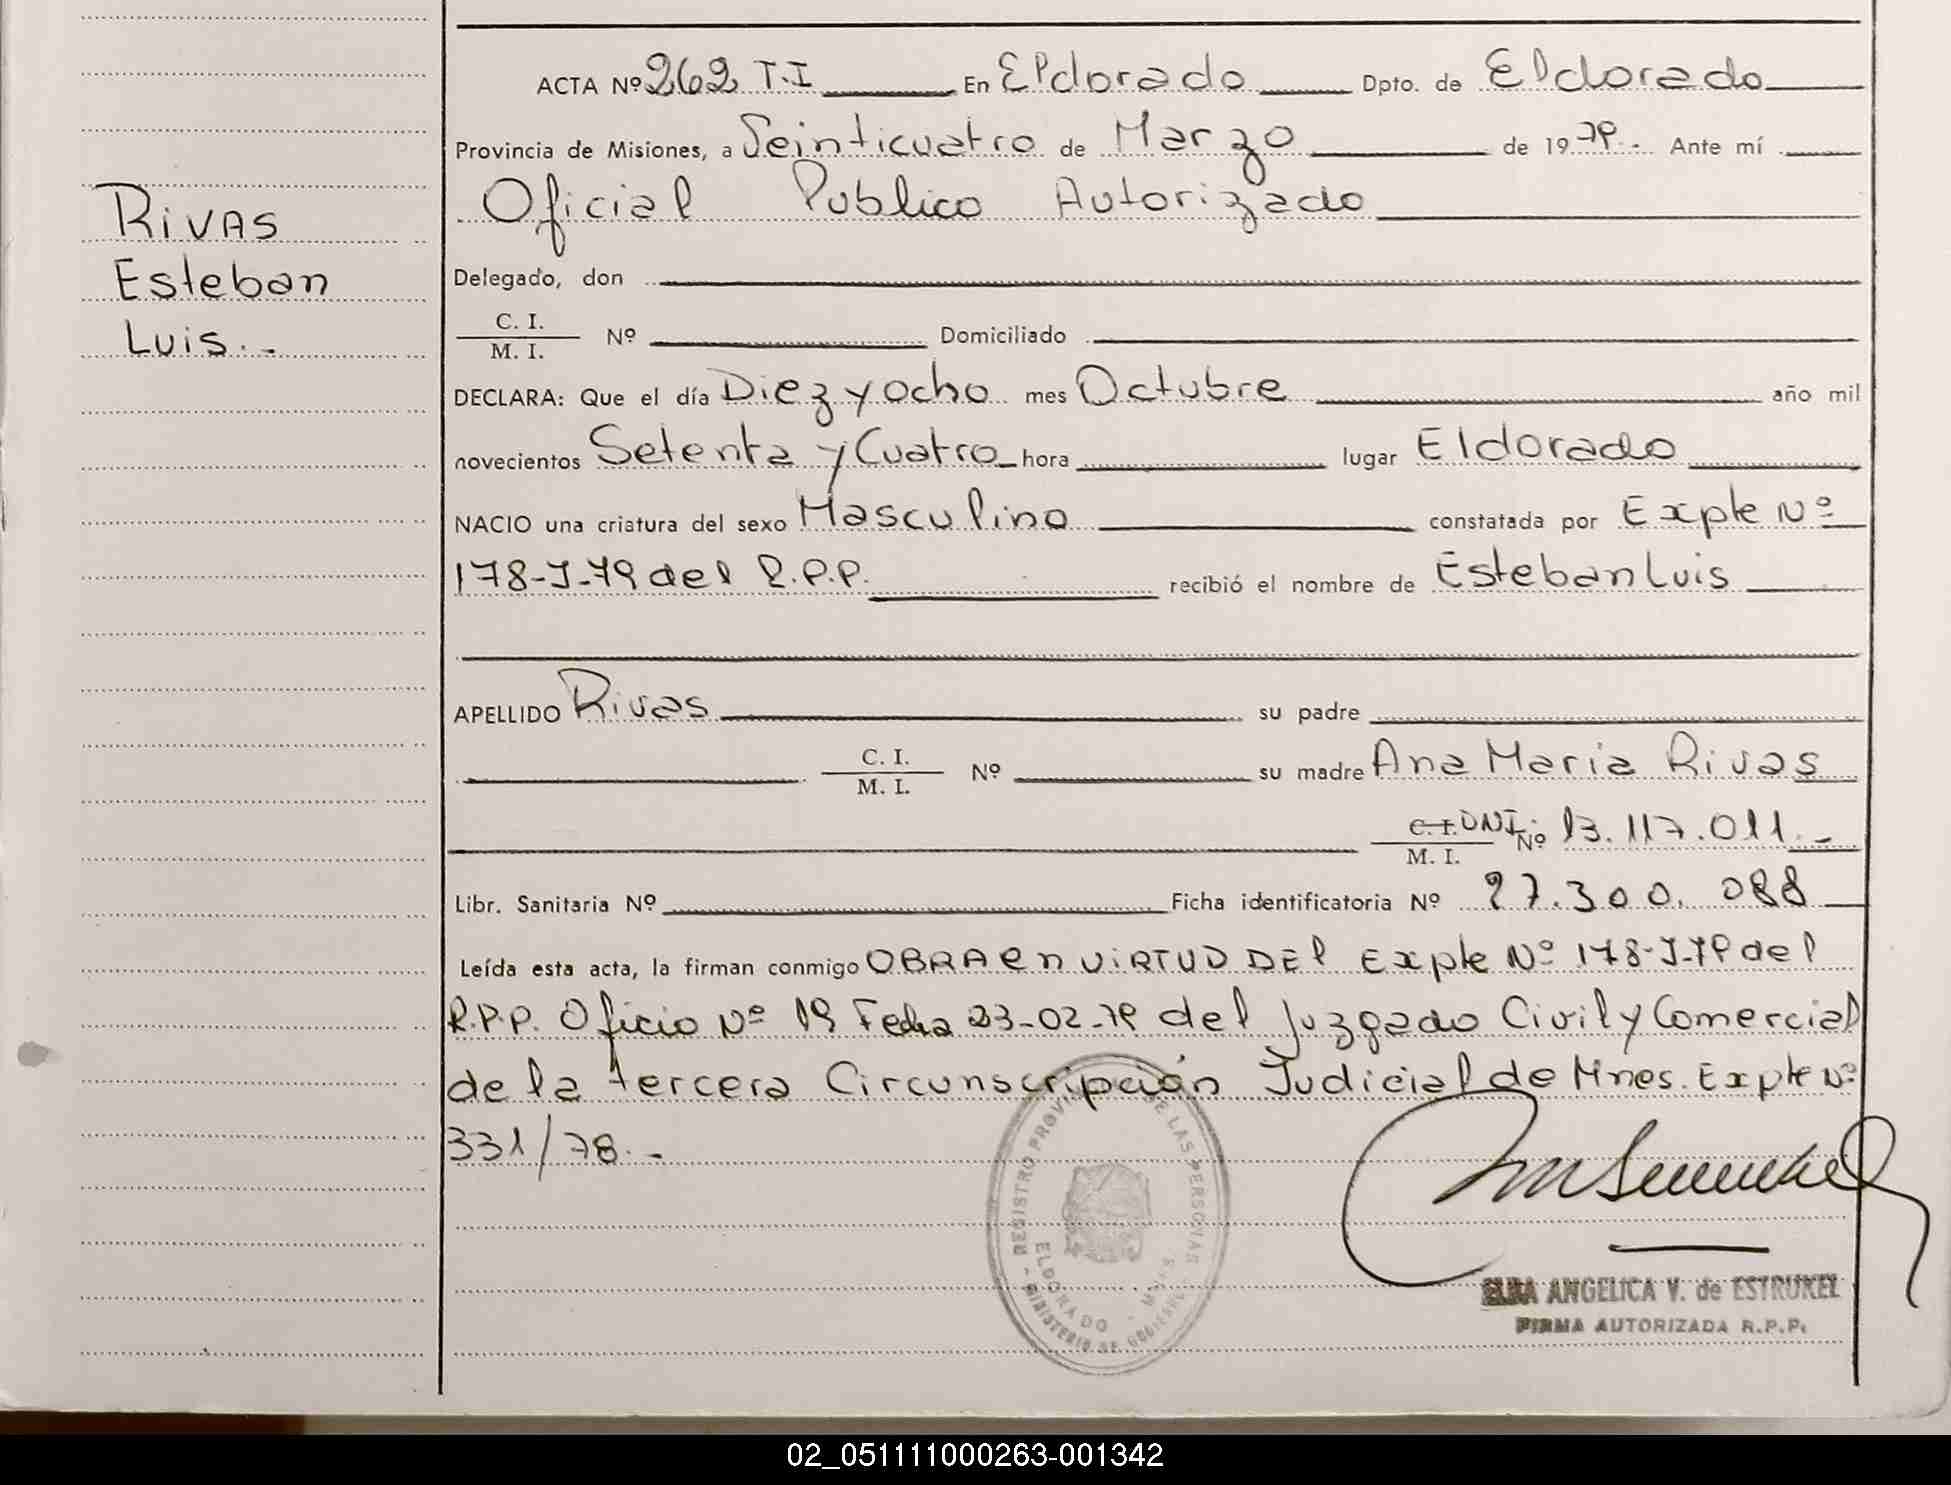 ACTA Nº 262 T.I En Eldorado Dpto. de Eldorado
Provincia de Misiones, a Veinticuatro de Marzo de 1979.- Ante mí
Oficial Publico Autorizado
RIVAS
Esteban
Luis.-
Delegado, don
C. I.
M. I. Nº Domiciliado
DECLARA: Que el día Diez y ocho mes Octubre año mil
novecientos Setenta y Cuatro hora lugar Eldorado
NACIO una criatura del sexo Masculino constatada por Expte Nº
178-J-79 del R.P.P. recibió el nombre de Esteban Luis
APELLIDO Rivas su padre
C. I.
M. I. Nº su madre Ana Maria Rivas
C. I. DNI
M. I. Nº 13.117.011.-
Libr. Sanitaria Nº Ficha identificatoria Nº 27.300.088
Leída esta acta, la firman conmigo OBRA en VIRTUD DEL Expte Nº 178-J-79 del
R.P.P. Oficio Nº 19 Fecha 23-02-79 del Juzgado Civil y Comercial
de la tercera Circunscripción Judicial de Mnes. Expte Nº
331/78.-
REGISTRO PROVINCIAL DE LAS PERSONAS
ELDORADO - MNES.
MINISTERIO DE GOBIERNO
ELBA ANGELICA V. de ESTRUKEL
FIRMA AUTORIZADA R.P.P.
02_051111000263-001342